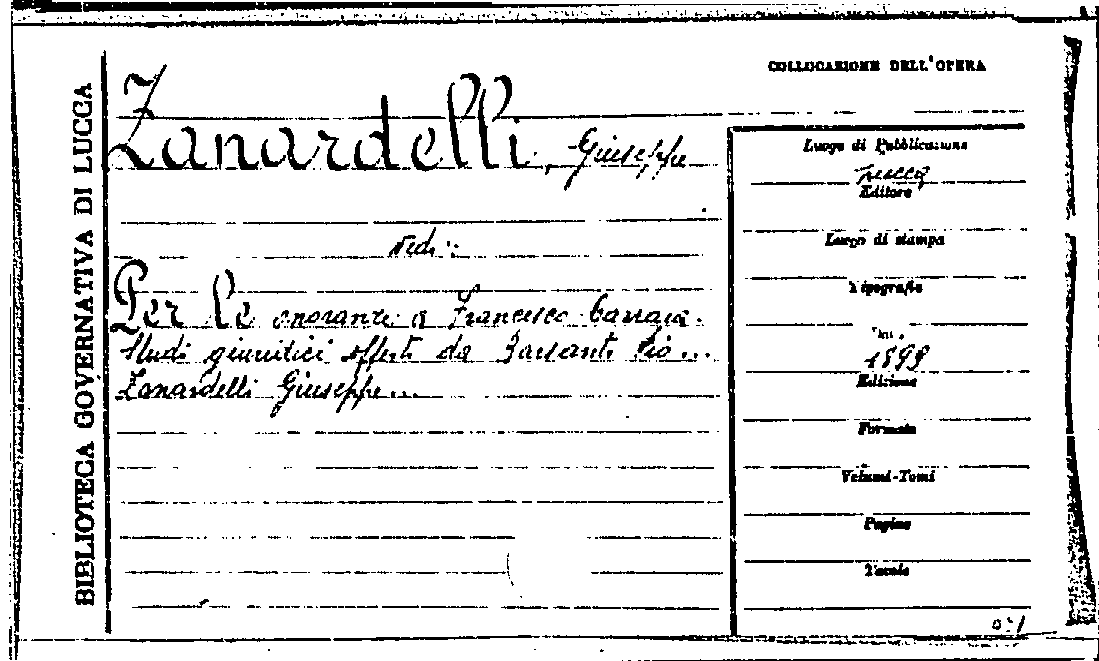 BIBLIOTECA GOVERNATIVA DI LUCCA
COLLOCAZIONE DELL'OPERA
Zanardelli, Giuseppe
vedi:
Per le onoranze a Francesco Carrara.
Studi giuridici offerti da Barsanti Pio...
Zanardelli Giuseppe...
Luogo di Pubblicazione
Lucca
Editore
Luogo di stampa
Tipografia
1899
Edizione
Formato
Volumi-Tomi
Pagine
Tavole